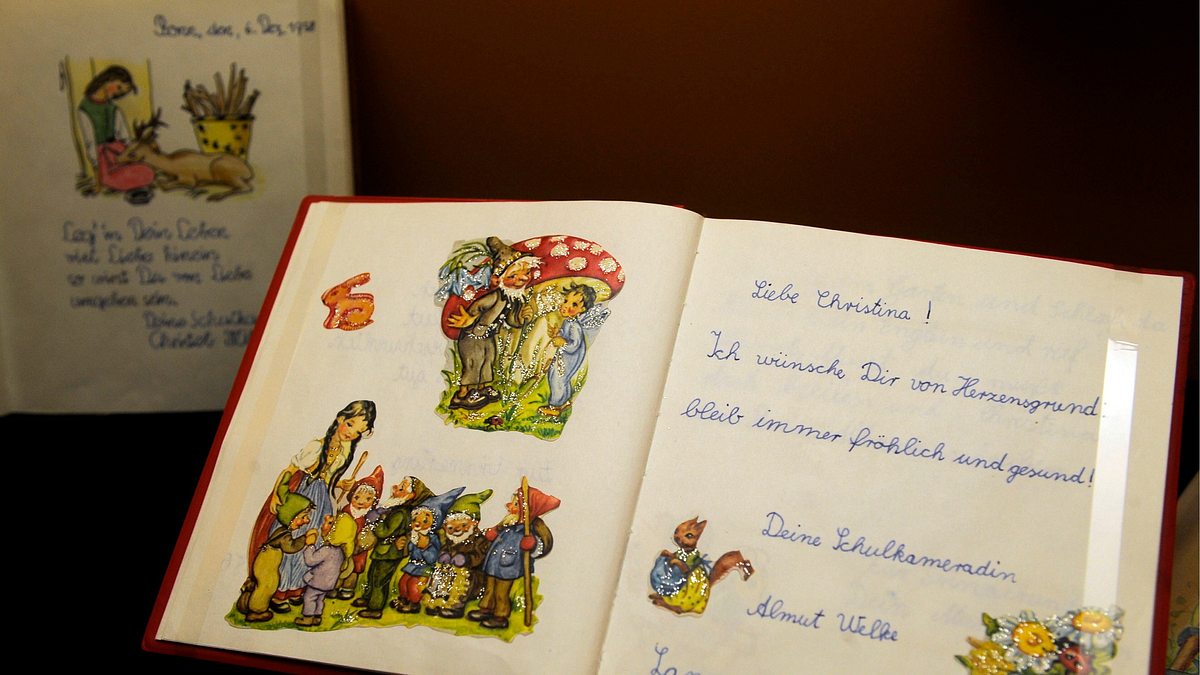 den, 6. Dez.
Leg' in Dein Leben
viel Liebe hinein
so wirst Du von Liebe
umgeben sein.
Deine
Liebe Christina !
Ich wünsche Dir von Herzensgrund:
bleib immer fröhlich und gesund!
Deine Schulkameradin
Almut Welke